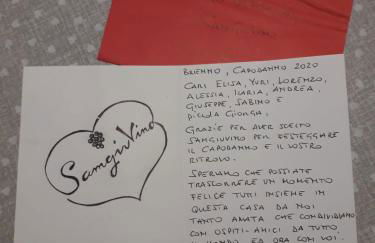 SamgiuVino
BRIENNO, CAPODANNO 2020
CARI ELISA, YURI, LORENZO,
ALESSIA, ILARIA, ANDREA,
GIUSEPPE, SABINO E
PICCOLA GIORGIA,
GRAZIE PER AVER SCELTO
SAMGIUVINO PER FESTEGGIARE
IL CAPODANNO E IL VOSTRO
RITROVO.
SPERIAMO CHE POSSIATE
TRASCORRERE UN MOMENTO
FELICE TUTTI INSIEME IN
QUESTA CASA DA NOI
TANTO AMATA CHE CONDIVIDIAMO
CON OSPITI-AMICI DA TUTTO
IL MONDO ED ORA CON VOI.